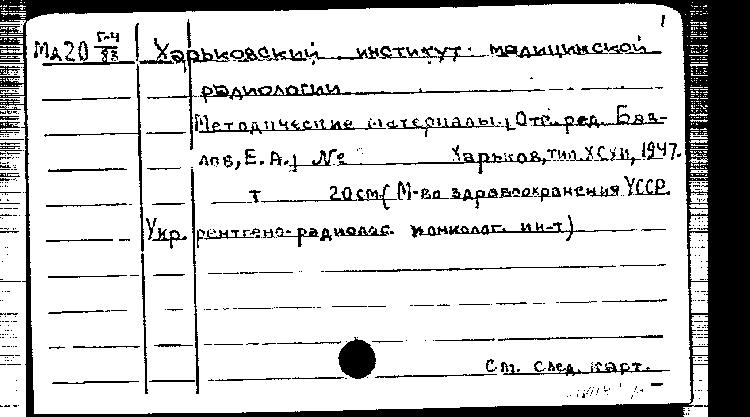 1
Мд20 Г-4/83 Харьковский институт медицинской
радиологии
Методические материалы. [Отв. ред. Баз-
лов, Е.А.] №
Харьков, тип. ХСХИ, 1947.
т 20 см (М-во здравоохранения УССР.
Укр. рентгено-радиолог. и онколог. ин-т)
См. след. карт.